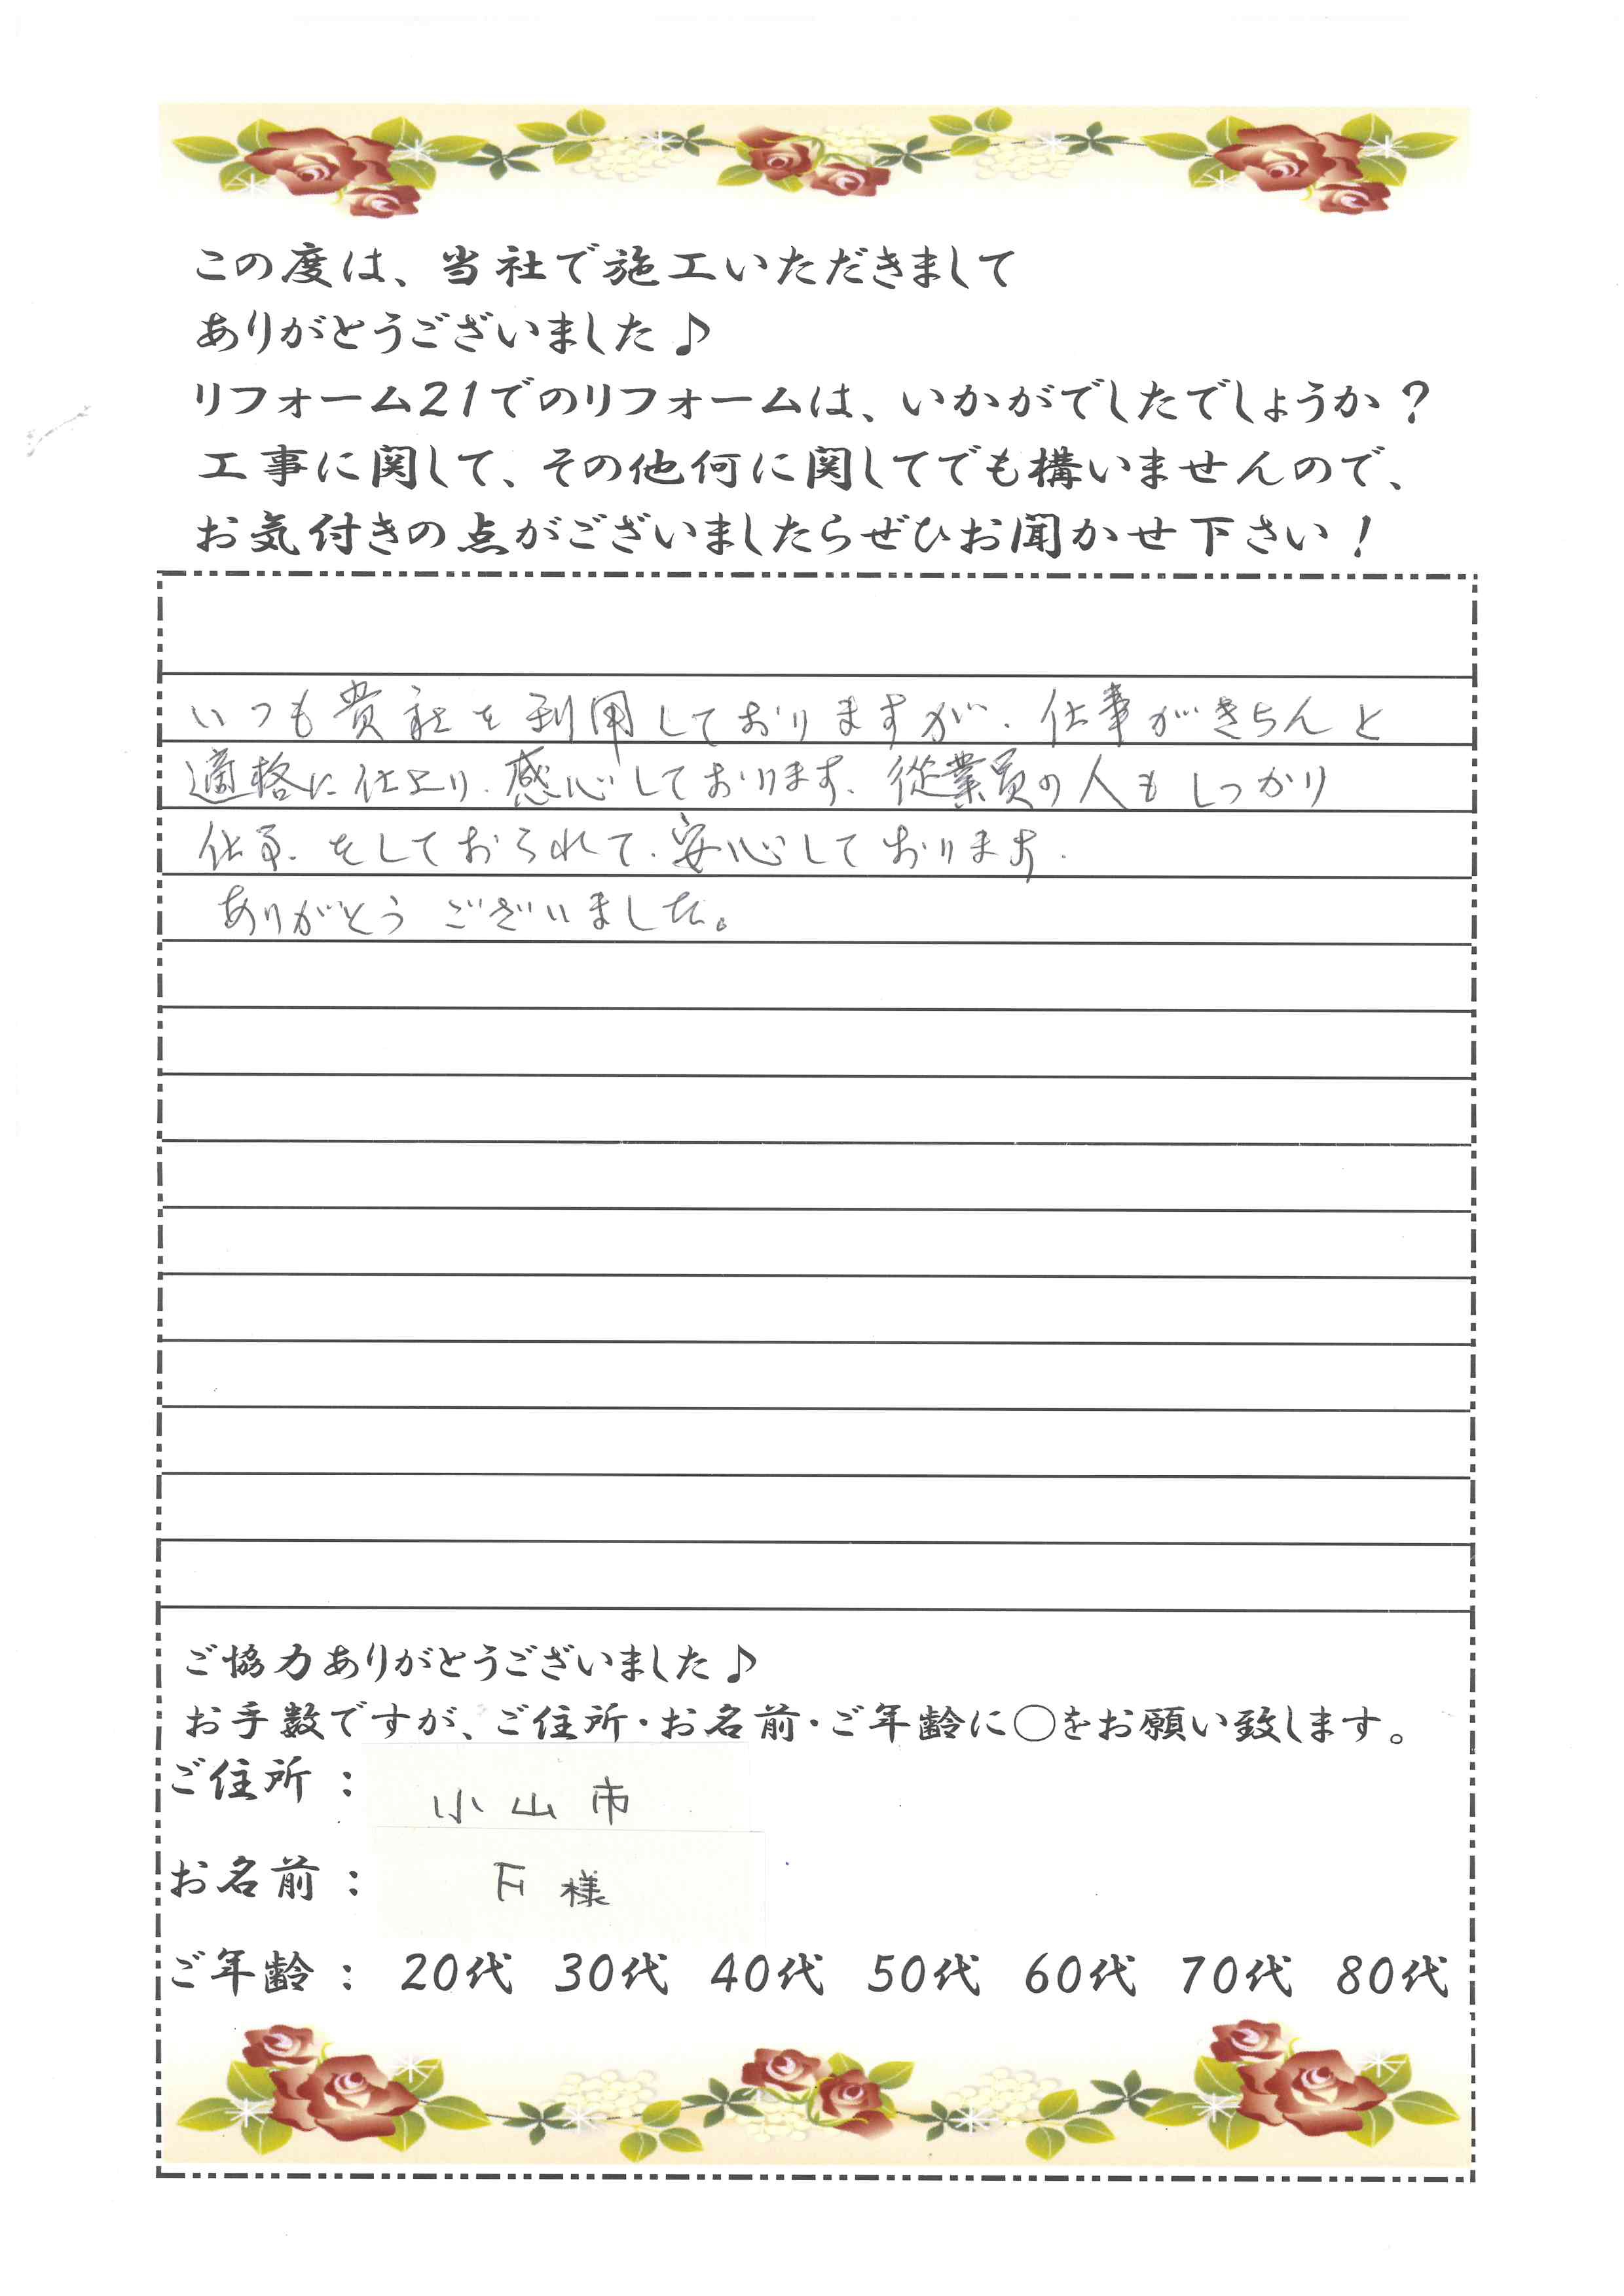 この度は、当社で施工いただきまして
ありがとうございました♪
リフォーム21でのリフォームは、いかがでしたでしょうか？
工事に関して、その他何に関してでも構いませんので、
お気付きの点がございましたらぜひお聞かせ下さい！
いつも貴社を利用しておりますが、仕事がきちんと
適格に仕上り、感心しております、従業員の人もしっかり
仕事をしておられて、安心しております.
ありがとうございました。
ご協力ありがとうございました♪
お手数ですが、ご住所・お名前・ご年齢に〇をお願い致します。
ご住所： 小山市
お名前： F様
ご年齢： 20代 30代 40代 50代 60代 70代 80代